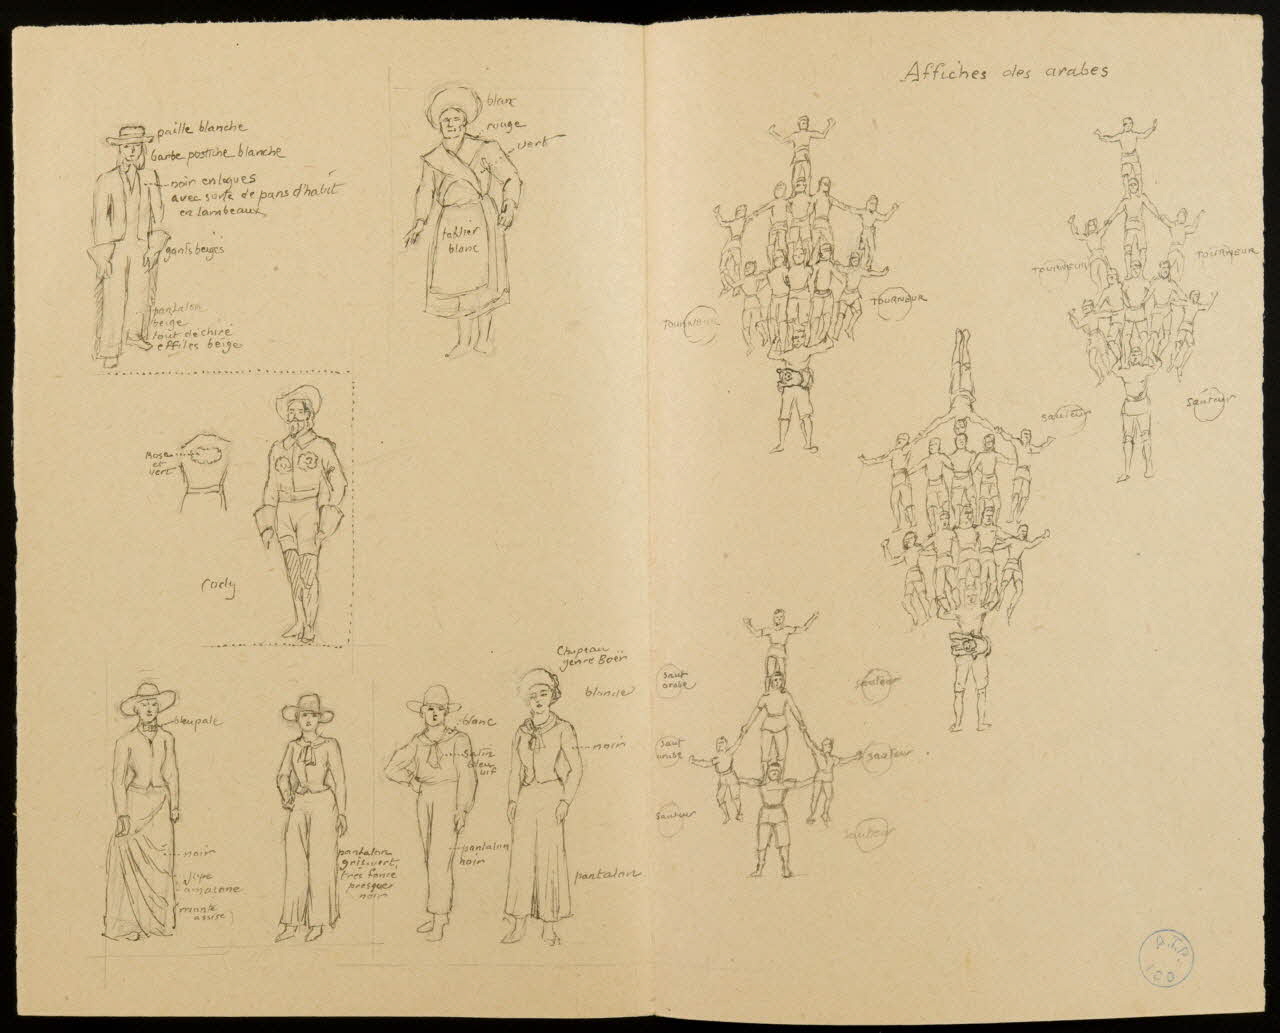 paille blanche
barbe postiche blanche
noir en loques
avec sorte de pans d'habit
en lambeaux
gants beiges
pantalon
beige
tout déchiré
effilés beige
blanc
rouge
vert
tablier
blanc
Rose
et
vert
Cody
bleu pale
noir
jupe
amazone
(monte
assise)
pantalon
gris-vert,
très foncé
presque
noir
blanc
satin
bleu
vif
pantalon
noir
Chapeau
genre Boër
blonde
noir
pantalon
Affiches des arabes
TOURNEUR
TOURNEUR
TOURNEUR
TOURNEUR
sauteur
sauteur
saut
arabe
sauteur
saut
arabe
sauteur
sauteur
sauteur
A.T.P.
100